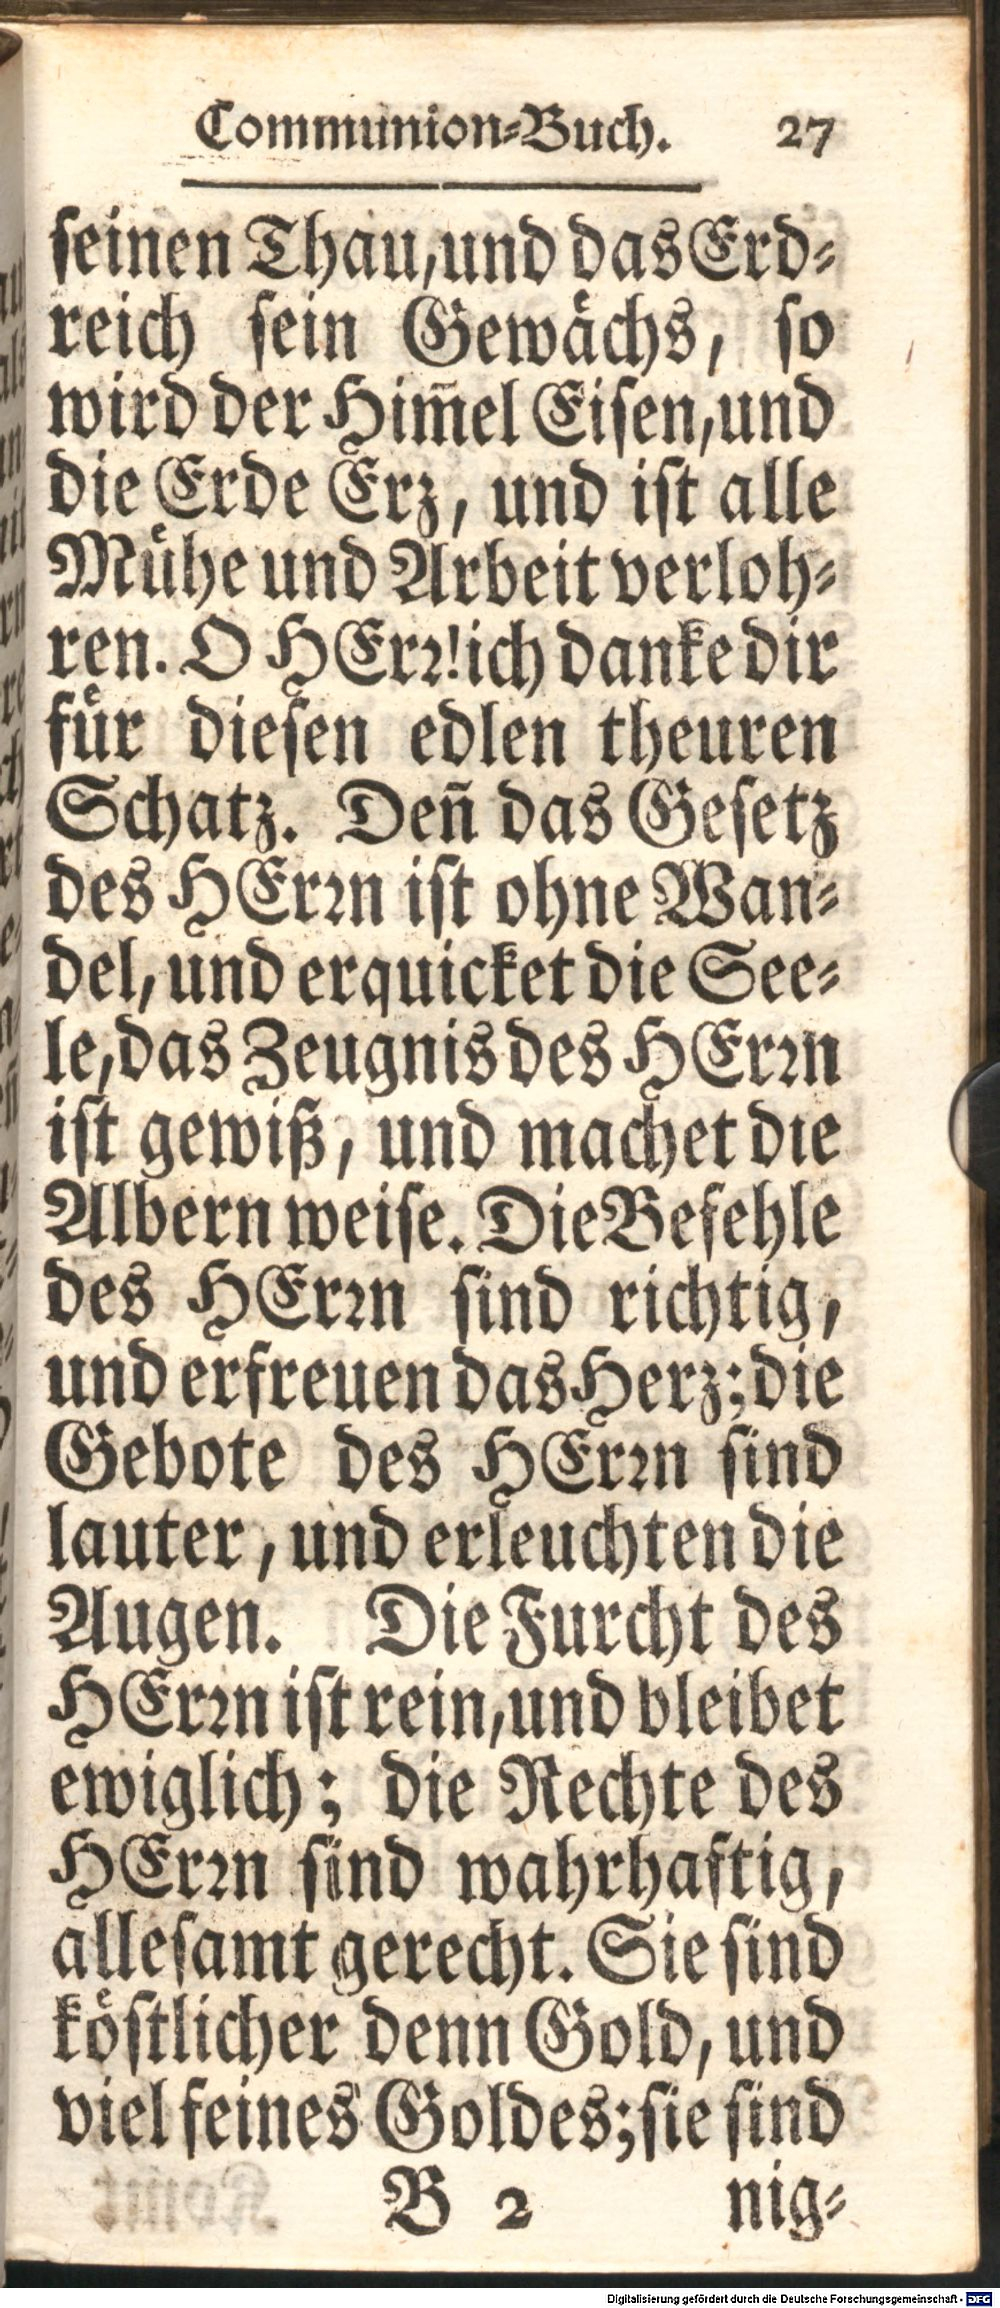 Communion-Buch. 27
seinen Thau, und das Erd-
reich sein Gewaͤchs, so
wird der Him̃el Eisen, und
die Erde Erz, und ist alle
Muͤhe und Arbeit verloh-
ren. O HErꝛ! ich danke dir
fuͤr diesen edlen theuren
Schatz. Deñ das Gesetz
des HErꝛn ist ohne Wan-
del, und erquicket die See-
le, das Zeugnis des HErꝛn
ist gewiß, und machet die
Albern weise. Die Befehle
des HErꝛn sind richtig,
und erfreuen das Herz; die
Gebote des HErꝛn sind
lauter, und erleuchten die
Augen. Die Furcht des
HErꝛn ist rein, und bleibet
ewiglich; die Rechte des
HErꝛn sind wahrhaftig,
allesamt gerecht. Sie sind
koͤstlicher denn Gold, und
viel feines Goldes; sie sind
B 2 nig-
Digitalisierung gefördert durch die Deutsche Forschungsgemeinschaft - DFG